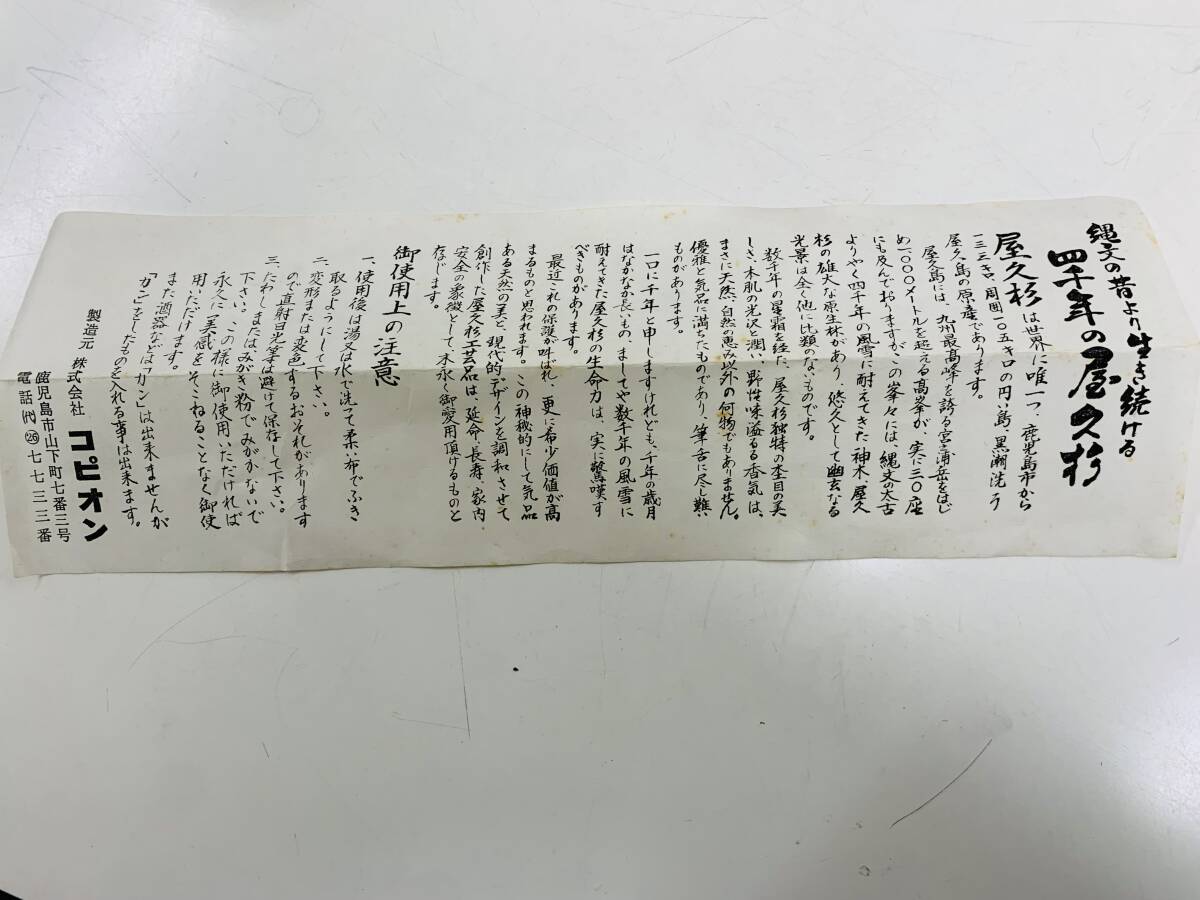 縄文の昔より生き続ける
四千年の屋久杉
屋久杉は世界に唯一つ、鹿児島市から
一三三キロ、周囲一〇五キロの円い島、黒潮洗う
屋久島の原産であります。
屋久島には、九州最高峰を誇る宮之浦岳をはじ
め一〇〇〇メートルを超える高峯が、実に三〇座
にも及んでおりますが、この峯々には、縄文の太古
よりやく四千年の風雪に耐えてきた神木、屋久
杉の雄大な原生林があり、悠久として幽玄なる
光景は全く他に比類のないものです。
数千年の星霜を経た、屋久杉独特の杢目の美
しさ、木肌の光沢と潤い、野性味溢るる香気は、
まさに天然、自然の恵み以外の何物でもありません。
優雅と気品に満ちたものであり、筆舌に尽し難い
ものがあります。
一口に千年と申しますけれども、千年の歳月
はなかなか長いもの、ましてや数千年の風雪に
耐えてきた屋久杉の生命力は、実に驚嘆す
べきものがあります。
最近これの保護が叫ばれ、更に希少価値が高
まるものと思われます。この神秘的にして気品
ある天然の美と、現代的デザインを調和させて
創作した屋久杉工芸品は、延命、長寿、家内
安全の象徴として末永く御愛用頂けるものと
存じます。
御使用上の注意
一、使用後は湯又は水で洗って柔い布でふき
取るようにして下さい。
二、変形または変色するおそれがあります
ので直射日光等は避けて保存して下さい。
三、たわしまたはみがき粉でみがかないで
下さい。この様に御使用いただければ
永久に「美感」をそこねることなく御使
用いただけます。
また酒器などは「カン」は出来ませんが
「カン」をしたものを入れる事は出来ます。
製造元 株式会社 コピオン
鹿児島市山下町七番三号
電話(代)㉖七七三三番